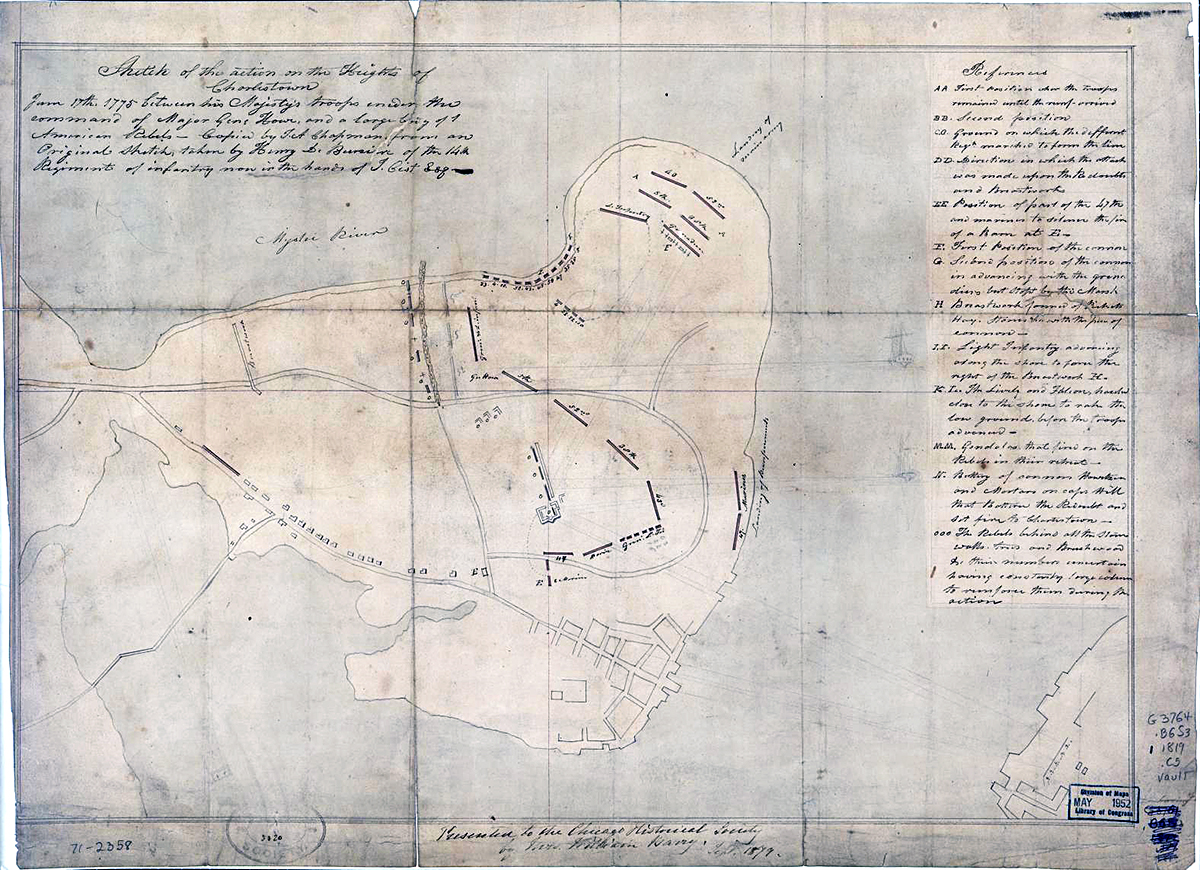 Sketch of the action on the Heights of
Charlestown
June 17th. 1775 between his Majesty's troops under the
command of Major Genl. Howe, and a large body of
American Rebels — Copied by J.A Chapman, from an
Original Sketch, taken by Henry De Berniere of the 14th
Regiment of infantry now in the hands of J. Cist Esqr
Mystic River
Landing of
A
40
5th
52nd
38th
A
L. Infantry
Grenadiers
E
5th
52nd
38th
43d
Marines
47
Landing of
47
References
AA First position
remained until the reinf. arrived
BB. Second position
CC. Ground on which the different
Regts. marched to form the line
DD. Direction in which the attack
was made upon the Redoubt
and Breastwork
EE Position of part of the 47th
and marines to silence the fire
of a Barn at E —
F. First Position of the cannon
G. Second position of the cannon
in advancing with the grena
diers but stopt by the Marsh
H Breastwork formed of Pickets
Hay. Stones &c with the pieces of
cannon —
I.I. Light Infantry advancing
along the shore to force the
right of the Breastwork H.
K L. The Lively and Falcon, hauled
close to the shore to rake the
low ground, before the troops
advanced —
M.M. Gondolas that fire on the
Rebels in their retreat —
N. Battery of cannon Howitzers
and Mortars on Cops Hill
that Batter the Redoubt and
set fire to Charlestown —
OOO The Rebels behind all the Stone
walls. Trees and Brushwood
& their numbers uncertain
having constantly large column
to reinforce them during the
action
Presented to the Chicago Historical Society
by Rev. William Barry. Sept. 1879.
71-2358
3020
G 3764
.B6S3
1819
.C5
vault
Division of Maps
MAY 1952
Library of Congress